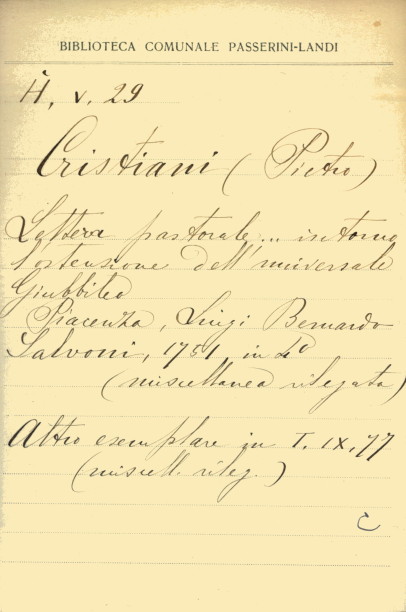 BIBLIOTECA COMUNALE PASSERINI-LANDI
H, v. 29
Cristiani (Pietro)
Lettera pastorale... intorno
l'ostensione dell'universale
Giubbileo
Piacenza, Luigi Bernardo
Salvoni, 1751, in 4º
(miscellanea rilegata)
Altro exemplare in T. IX, 77
(miscell. rileg.)
C